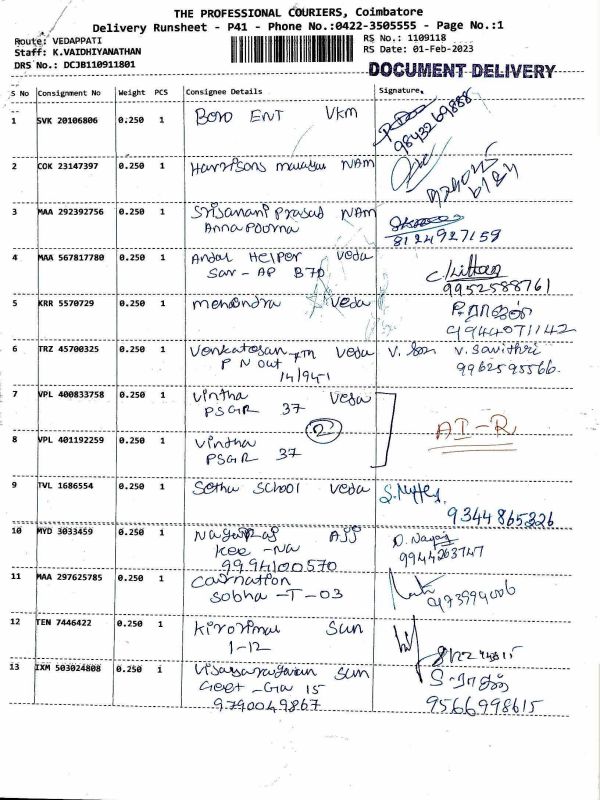 THE PROFESSIONAL COURIERS, Coimbatore
Delivery Runsheet - P41 - Phone No.:0422-3505555 - Page No.:1
Route: VEDAPPATI
Staff: K.VAIDHIYANATHAN
DRS No.: DCJB110911801
RS No.: 1109118
RS Date: 01-Feb-2023
DOCUMENT DELIVERY
S No Consignment No Weight PCS Consignee Details Signature
1 SVK 20106806 0.250 1 ENT VKM
9843269888
2 COK 23147397 0.250 1 Harrisons malayalam NAM
3 MAA 292392756 0.250 1 Srisanani Prasad NAM
Annapoorna
8124927159
4 MAA 567817780 0.250 1 Andal Helper Veda
Sar - AP B70
9952588761
5 KRR 5570729 0.250 1 mahendra Veda
9944071142
6 TRZ 45700325 0.250 1 Venkatesan Veda V. Savithri
P N out
14/94-1
9962595566.
7 VPL 400833758 0.250 1 Vintha Veda
PSGR 37
2
AI-R
8 VPL 401192259 0.250 1 Vintha
PSGR 37
9 TVL 1686554 0.250 1 Sethu School Veda
9344865326
10 MYD 3033459 0.250 1 Nagaraj Ajj D. Nagaj
Kee - Na
9994100570
9944263747
11 MAA 297625785 0.250 1 Carnation
Sobha - T - 03
12 TEN 7446422 0.250 1 Kirorimal Sun
1-12
13 IXM 503024808 0.250 1 Vijayaragavan Sun
Geet - Ga 15
9790049867
9566998615